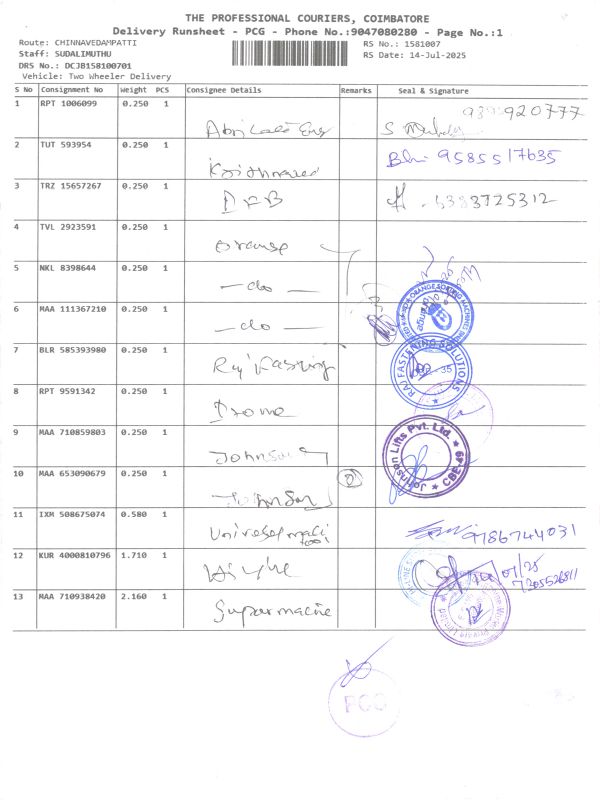 THE PROFESSIONAL COURIERS, COIMBATORE
Delivery Runsheet - PCG - Phone No.:9047080280 - Page No.:1
Route: CHINNAVEDAMPATTI
Staff: SUDALIMUTHU
DRS No.: DCJB158100701
Vehicle: Two Wheeler Delivery
RS No.: 1581007
RS Date: 14-Jul-2025
S No Consignment No Weight PCS Consignee Details Remarks Seal & Signature
1 RPT 1006099 0.250 1
2 TUT 593954 0.250 1 9585517635
3 TRZ 15657267 0.250 1 DFB
4 TVL 2923591 0.250 1 Orange
5 NKL 8398644 0.250 1 - do -
6 MAA 111367210 0.250 1 - do -
ORANGE SORTING MACHINES
7 BLR 585393980 0.250 1
RAJ FASTENING SOLUTIONS
8 RPT 9591342 0.250 1
9 MAA 710859803 0.250 1 Johnson
Johnson Lifts Pvt. Ltd. CBE-49
10 MAA 653090679 0.250 1 Johnson
11 IXM 508675074 0.580 1 9786744031
12 KUR 4000810796 1.710 1
13 MAA 710938420 2.160 1
PCG